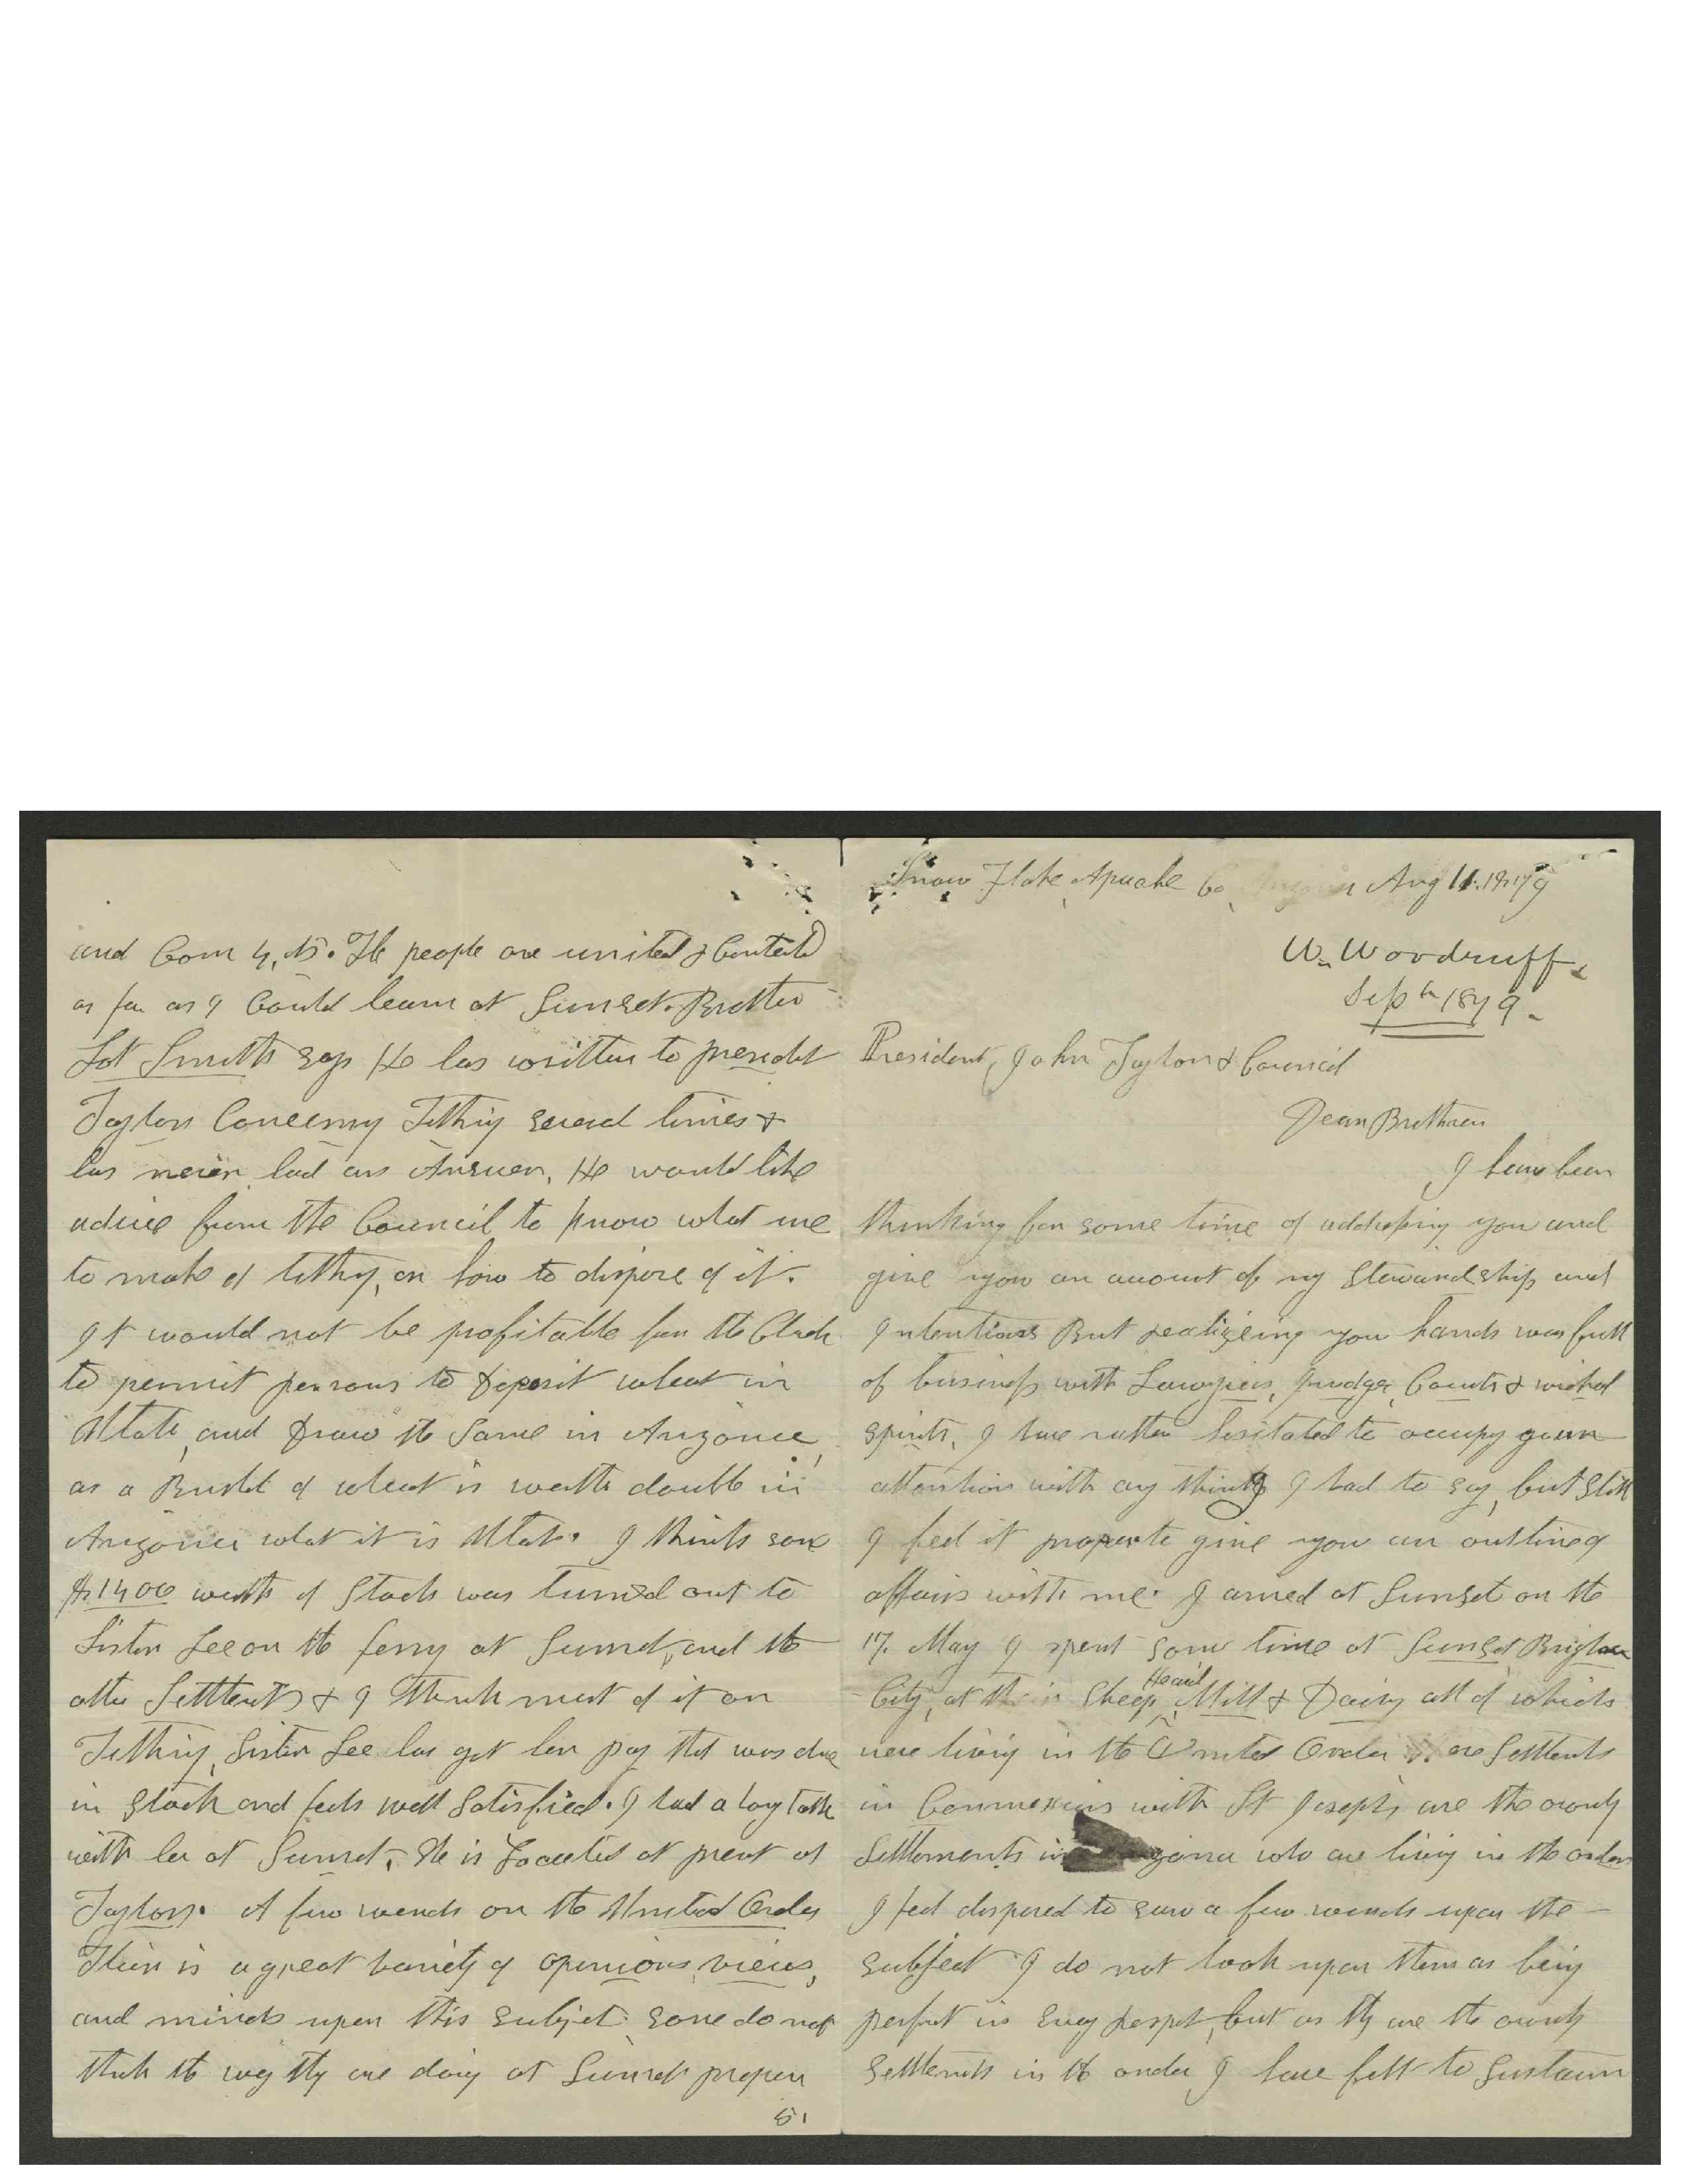 Snow Flake, Apache Co, Arizona Aug 11. 1879
W. Woodruff
Sept 1879.
President, John Taylor & Council
Dear Brethren
I have been
thinking for some time of addressing you and
give you an account of my Stewardship and
Intentions But realizeing you hands was full
of business with Lawyers, Judges, Courts & wicked
spirits, I have rather hesitated to occupy your
attention with any thing I had to say, but still
I feel it proper to give you an outline of
affairs with me. I arived at Sunset on the
17. May I spent some time at Sunset Brigham
City, at their Sheep Heard, Mill & Dairy all of which
were living in the United Order are Settlements
in Connexion with St Josephs, are the ownly
Settlements in who are living in the order
I feel disposed to say a few words upon the
subject I do not look upon them as being
perfect in evry respet, but as they are the ownly
settlements in the order I have felt to sustain
and Corn 4, 15. The people are united & Contented
as far as I Could learn at Sunset. Brother
Lot Smith says He has written to president
Taylor Concerning Tithing several times &
has never had an Answer, He would like
advice from the Council to know what use
to make of tithing, or how to dispose of it.
It would not be profitable for the Church
to permit persons to Deposit wheat in
Utah, and Draw the same in Arizona,
as a Bushel of wheat is worth double in
Arizona what it is Utah. I think some
$1400 worth of Stock was turned out to
Sister Lee on the ferry at Sunset, and the
other Settlements & I think most of it on
Tithing, Sister Lee has got her pay that was due
in Stock and feels well Satisfied. I had a long talk
with her at Sunset, She is Located at present at
Taylor. A few words on the United Order
Their is a great variety of opinions, views,
and minds upon this subject some do not
think the way they are doing at Sunset proper
51